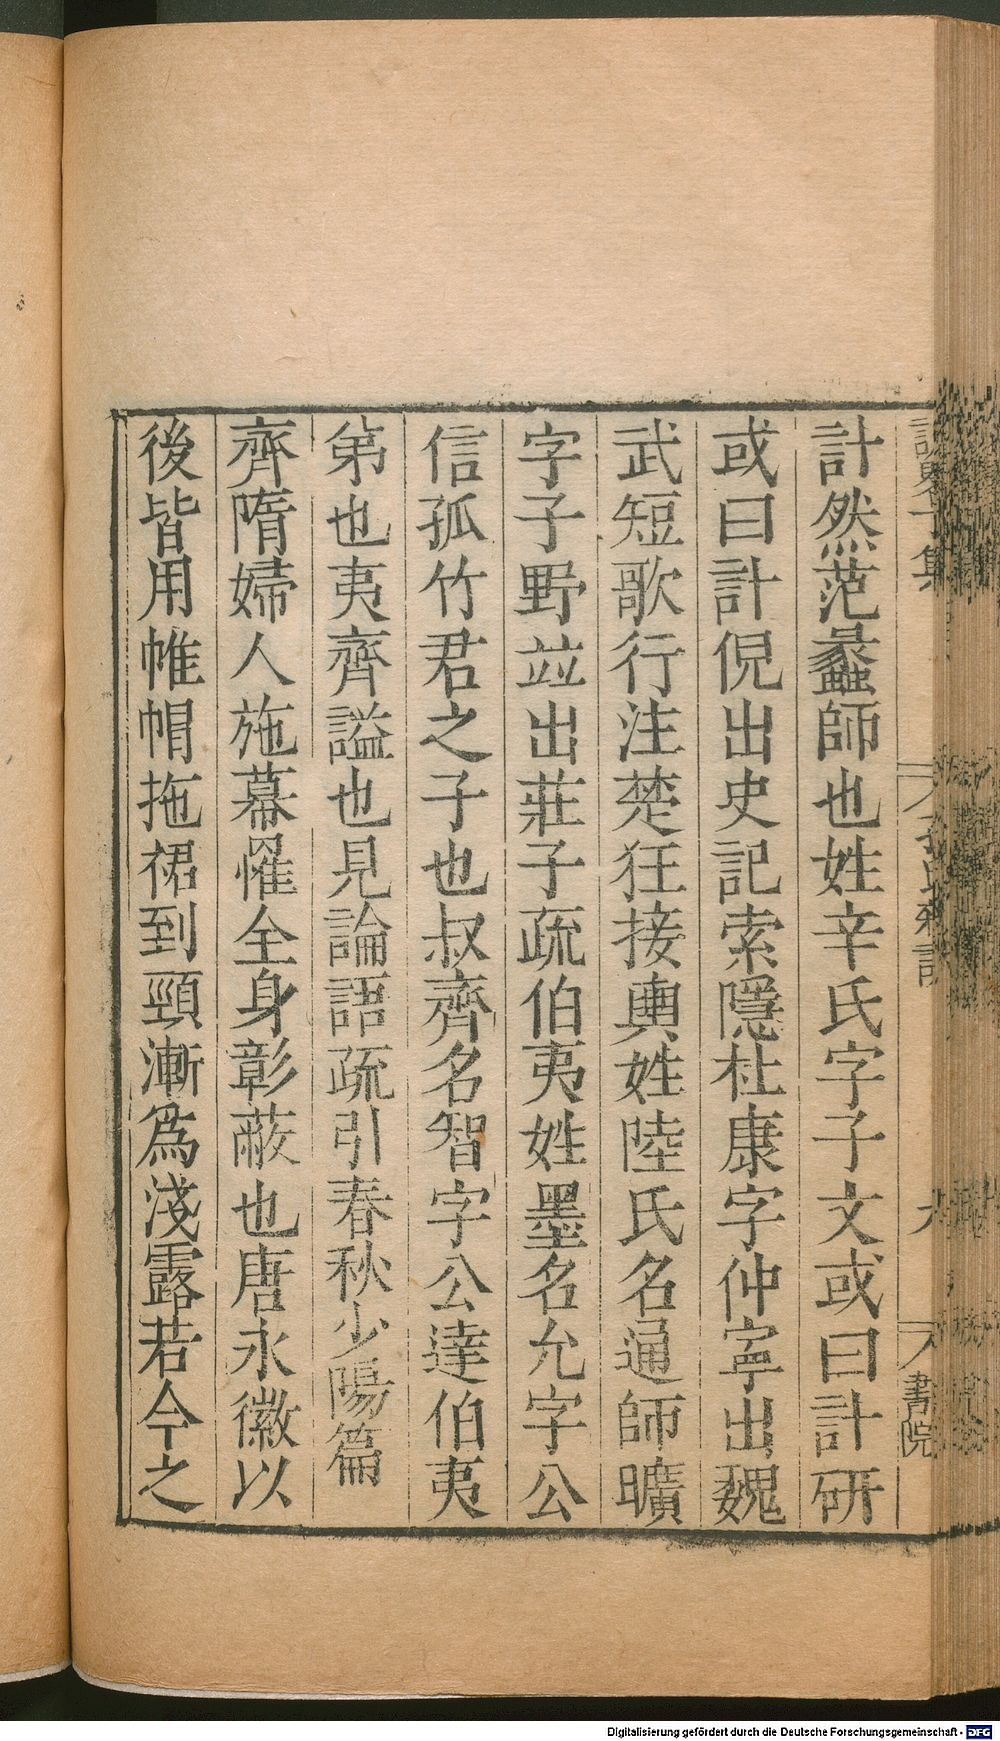 計然范蠡師也姓辛氏字子文或曰計研
或曰計倪出史記索隱杜康字仲寧出魏
武短歌行注楚狂接輿姓陸氏名通師曠
字子野並出莊子疏伯夷姓墨名允字公
信孤竹君之子也叔齊名智字公達伯夷
弟也夷齊謚也見論語疏引春秋少陽篇
齊隋婦人施幕䍦全身彰蔽也唐永徽以
後皆用帷帽拖裙到頸漸為淺露若今之
書院
Digitalisierung gefördert durch die Deutsche Forschungsgemeinschaft - DFG